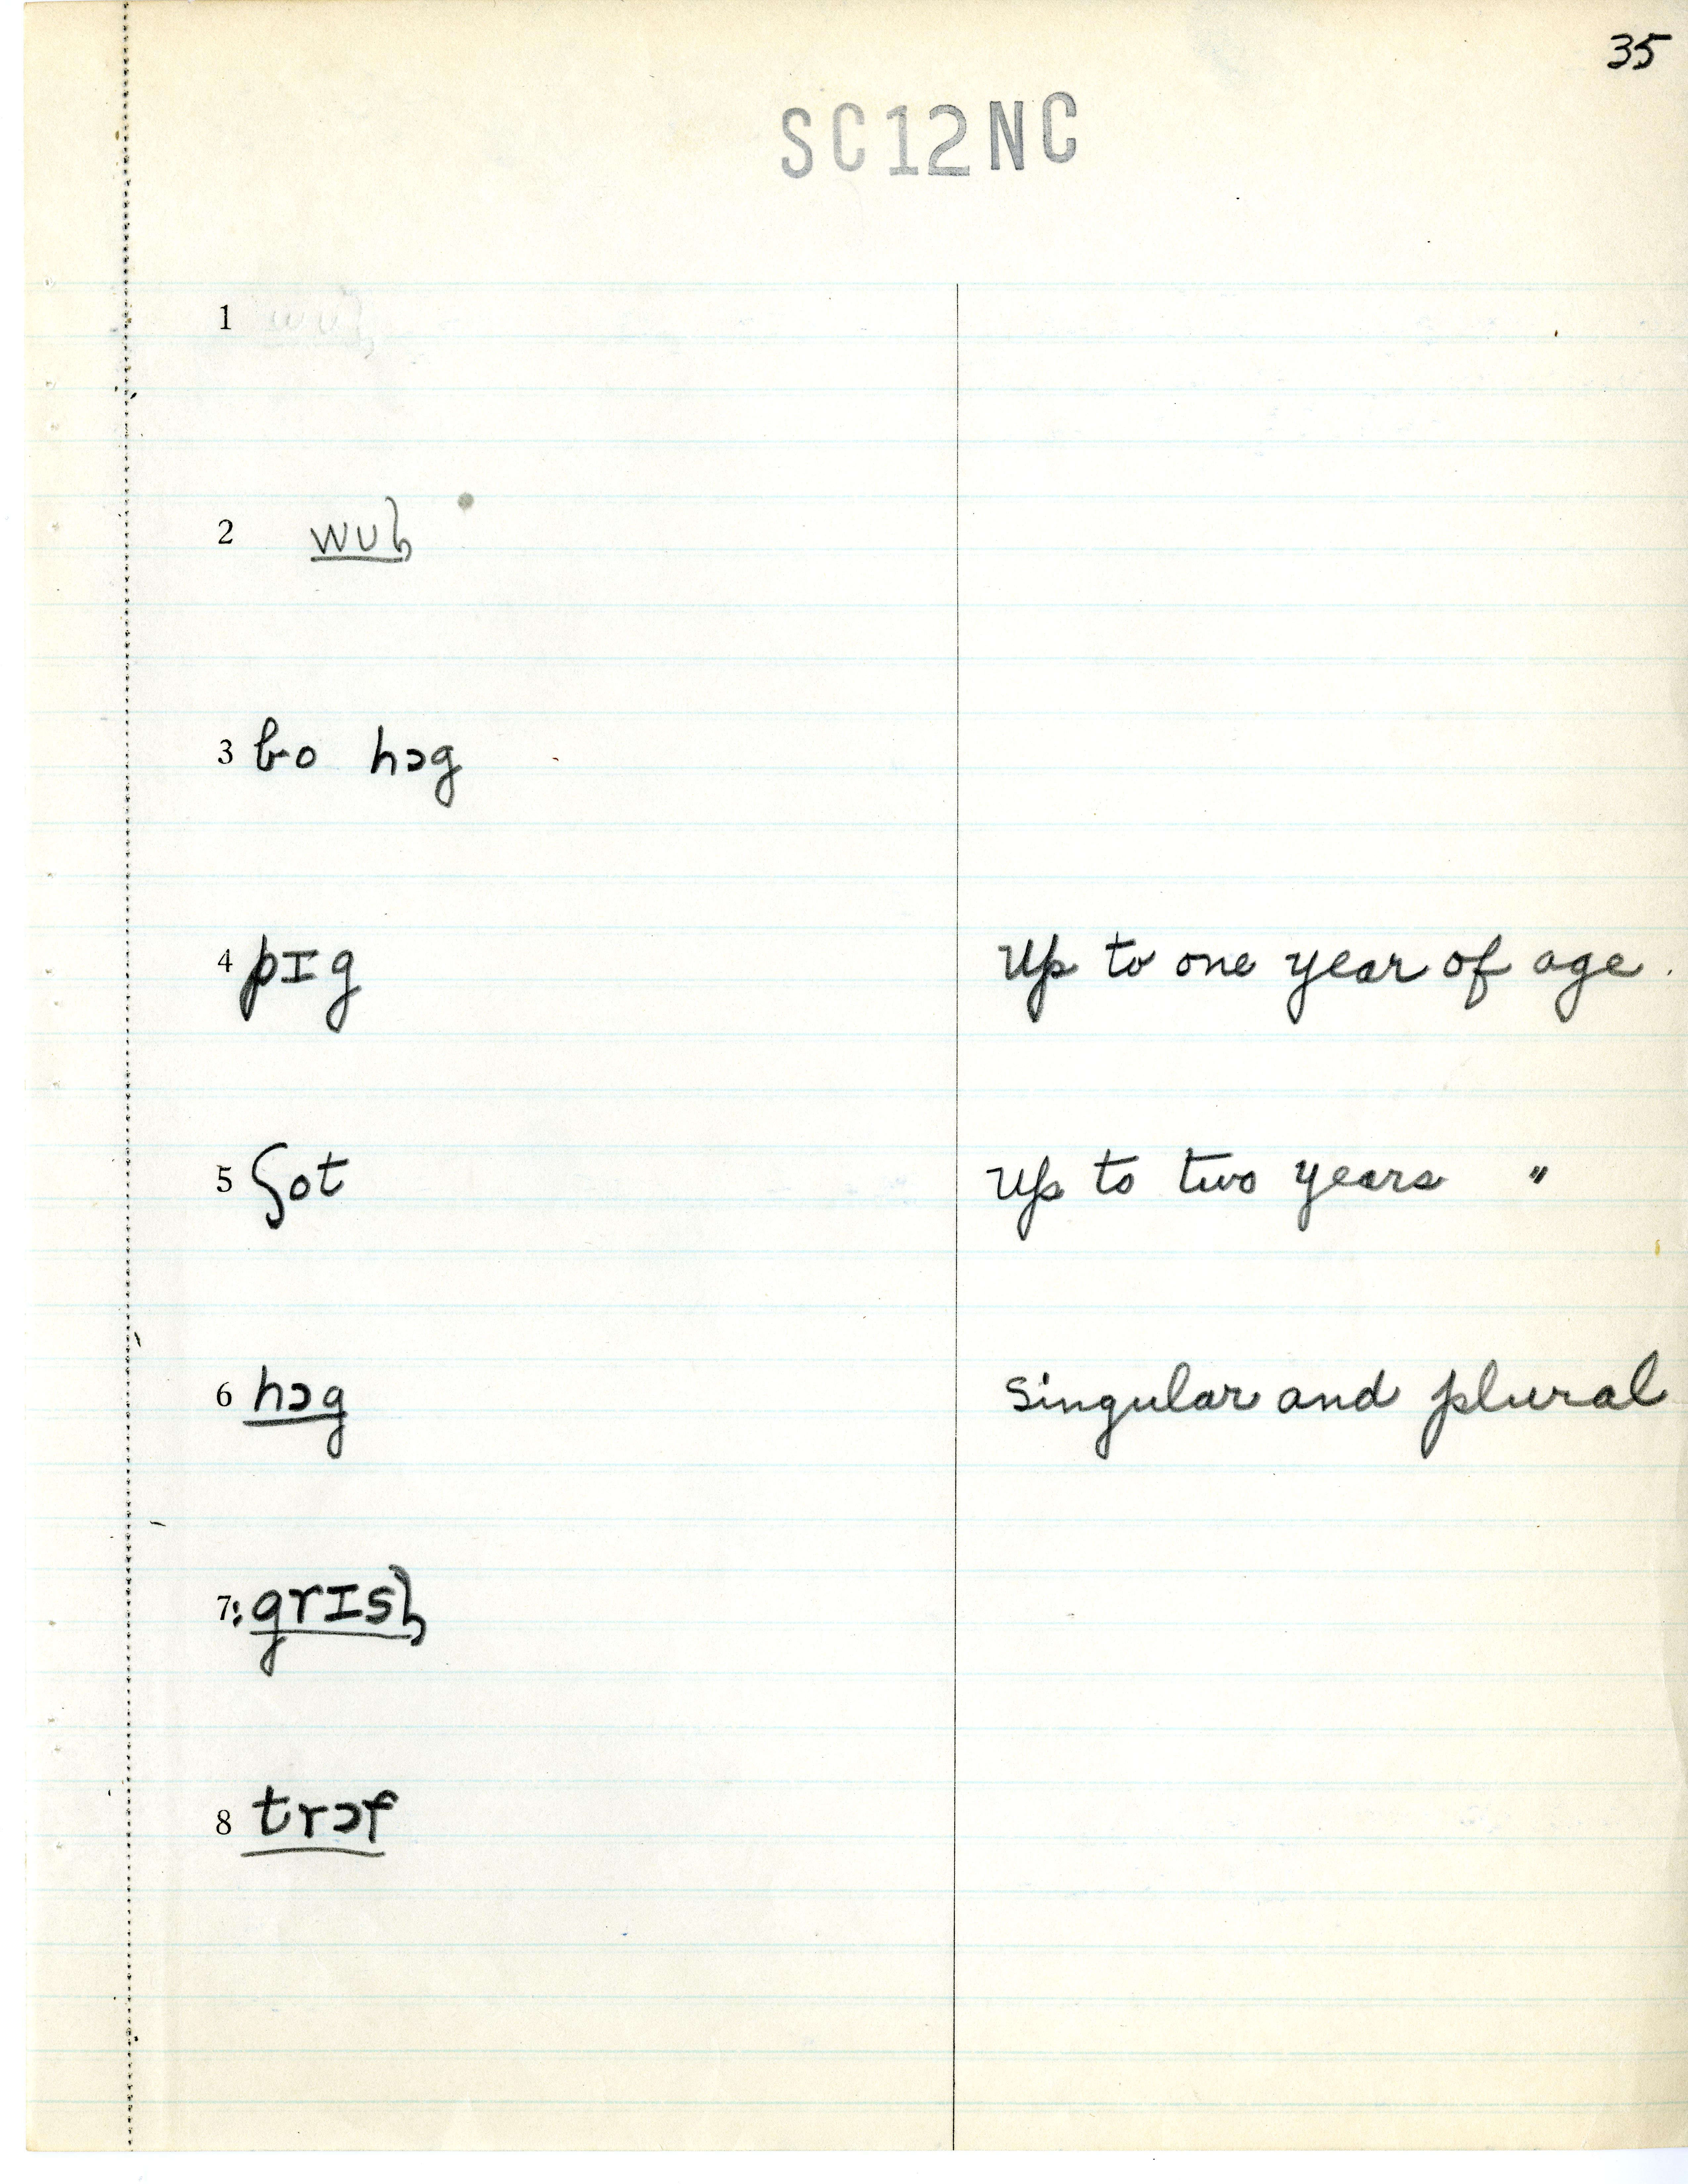 35
SC12NC
1
2 wuɫ
3 bo hɔg
4 pɪg Up to one year of age.
5 ʃot Up to two years "
6 hɔg Singular and plural
7: grɪsɫ
8 trɔf